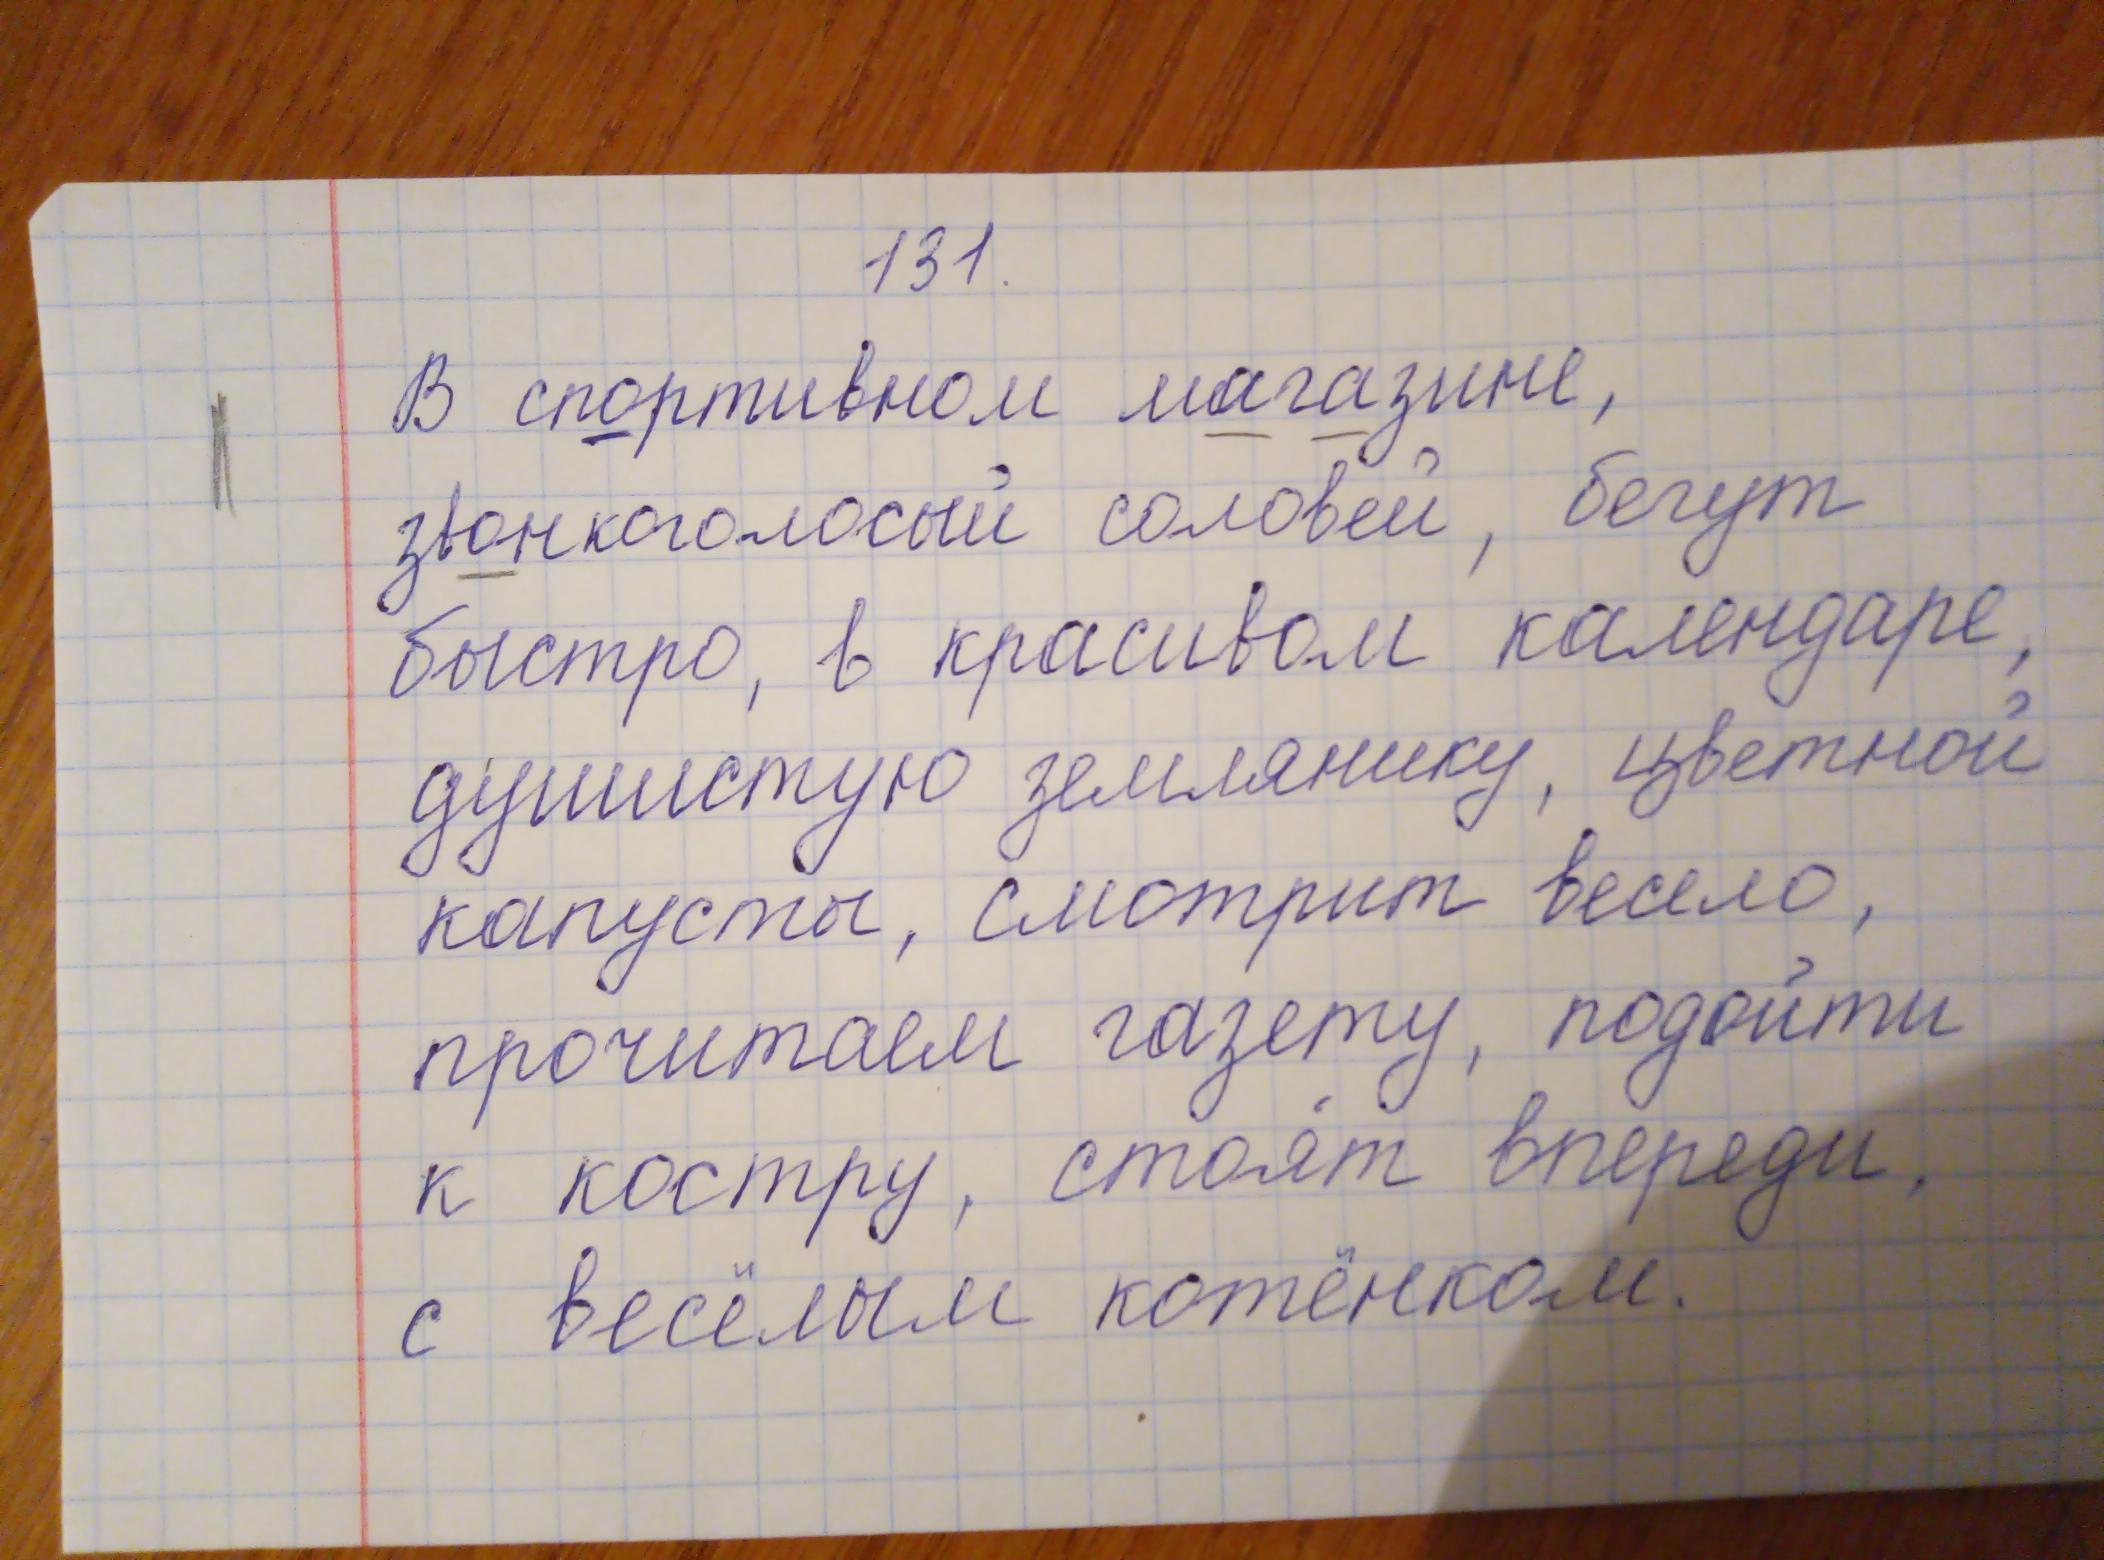 131.
В спортивном магазине,
звонкоголосый соловей, бегут
быстро, в красивом календаре,
душистую землянику, цветной
капусты, смотрит весело,
прочитаем газету, подойти
к костру, стоят впереди,
с весёлым котёнком.